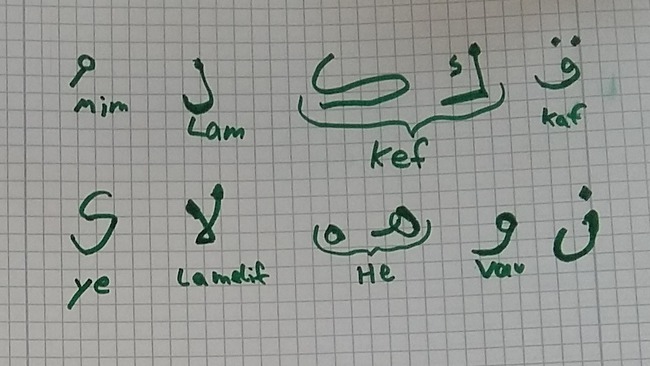 ق ك ک ل م
kaf kef Lam mim
ن و هـ ه لا ی
Vav He Lamelif ye